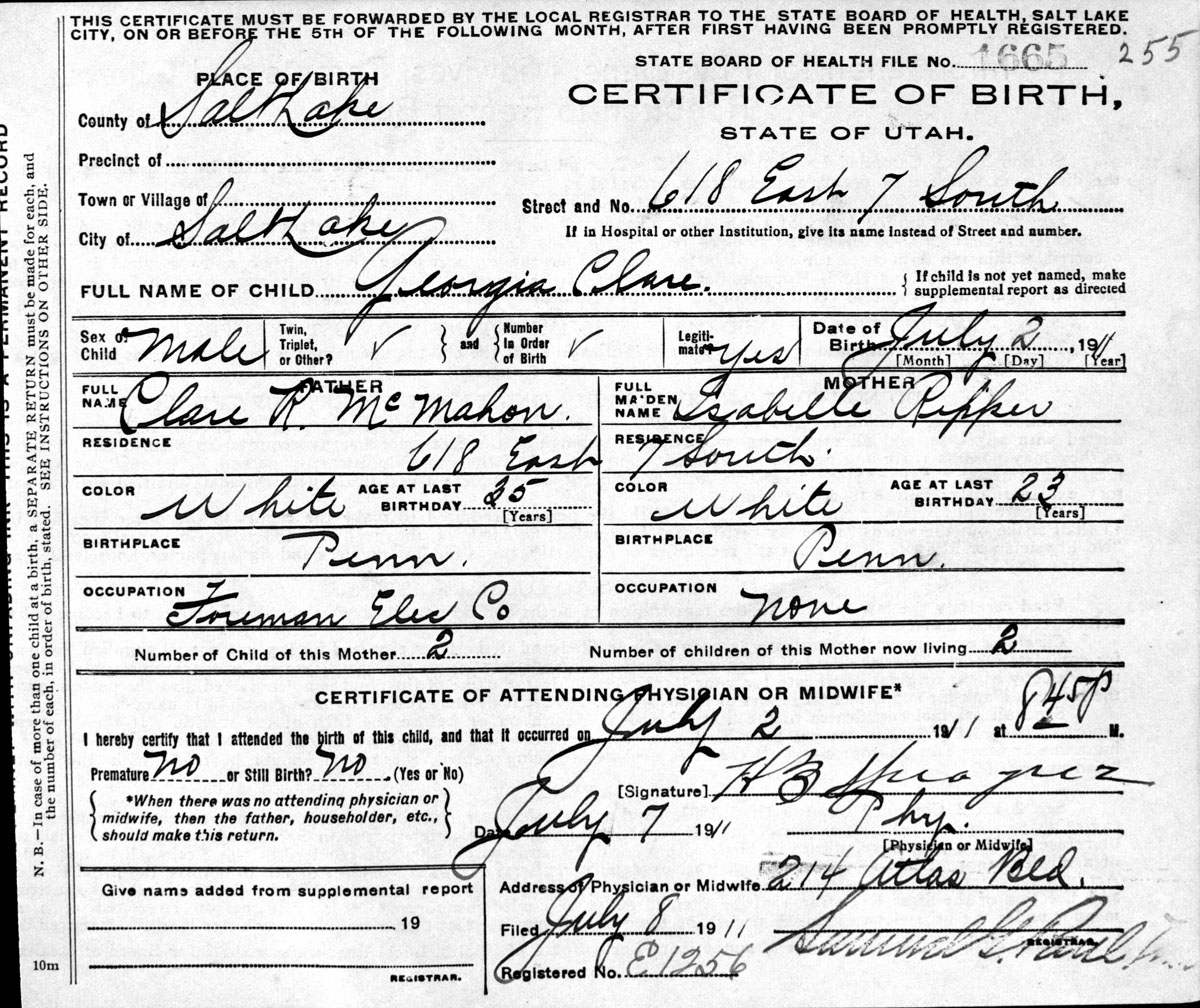 THIS CERTIFICATE MUST BE FORWARDED BY THE LOCAL REGISTRAR TO THE STATE BOARD OF HEALTH, SALT LAKE
CITY, ON OR BEFORE THE 5TH OF THE FOLLOWING MONTH, AFTER FIRST HAVING BEEN PROMPTLY REGISTERED.
STATE BOARD OF HEALTH FILE No. 1665 255
PLACE OF BIRTH
CERTIFICATE OF BIRTH,
County of Salt Lake
STATE OF UTAH.
Precinct of
Town or Village of
Street and No. 618 East 7 South
City of Salt Lake
If in Hospital or other Institution, give its name instead of Street and number.
FULL NAME OF CHILD Georgia Clare.
{ If child is not yet named, make
supplemental report as directed
Sex of Child Male
Twin, Triplet, or Other? ✓ } and { Number In Order of Birth ✓
Legiti- mate? Yes
Date of Birth July 2, 1911
[Month] [Day] [Year]
FATHER
FULL NAME Clare R. McMahon.
MOTHER
FULL MAIDEN NAME Isabelle Ripper
RESIDENCE 618 East
RESIDENCE 7 South.
COLOR White AGE AT LAST BIRTHDAY 35 [Years]
COLOR White AGE AT LAST BIRTHDAY 23 [Years]
BIRTHPLACE Penn.
BIRTHPLACE Penn.
OCCUPATION Foreman Elec Co
OCCUPATION None
Number of Child of this Mother 2
Number of children of this Mother now living 2
CERTIFICATE OF ATTENDING PHYSICIAN OR MIDWIFE*
I hereby certify that I attended the birth of this child, and that it occurred on July 2 1911 at 845 P M.
Premature No or Still Birth? No. (Yes or No)
[Signature] H B
{ *When there was no attending physician or
midwife, then the father, householder, etc.,
should make this return. }
Date July 7 1911
Phy.
[Physician or Midwife]
Give name added from supplemental report
19
REGISTRAR.
10m
Address of Physician or Midwife 214 Atlas Bld.
Filed July 8 1911
Samuel G. Paul
REGISTRAR.
Registered No. E1256
THIS IS A PERMANENT RECORD
N. B.—In case of more than one child at a birth, a SEPARATE RETURN must be made for each, and
the number of each, in order of birth, stated. SEE INSTRUCTIONS ON OTHER SIDE.